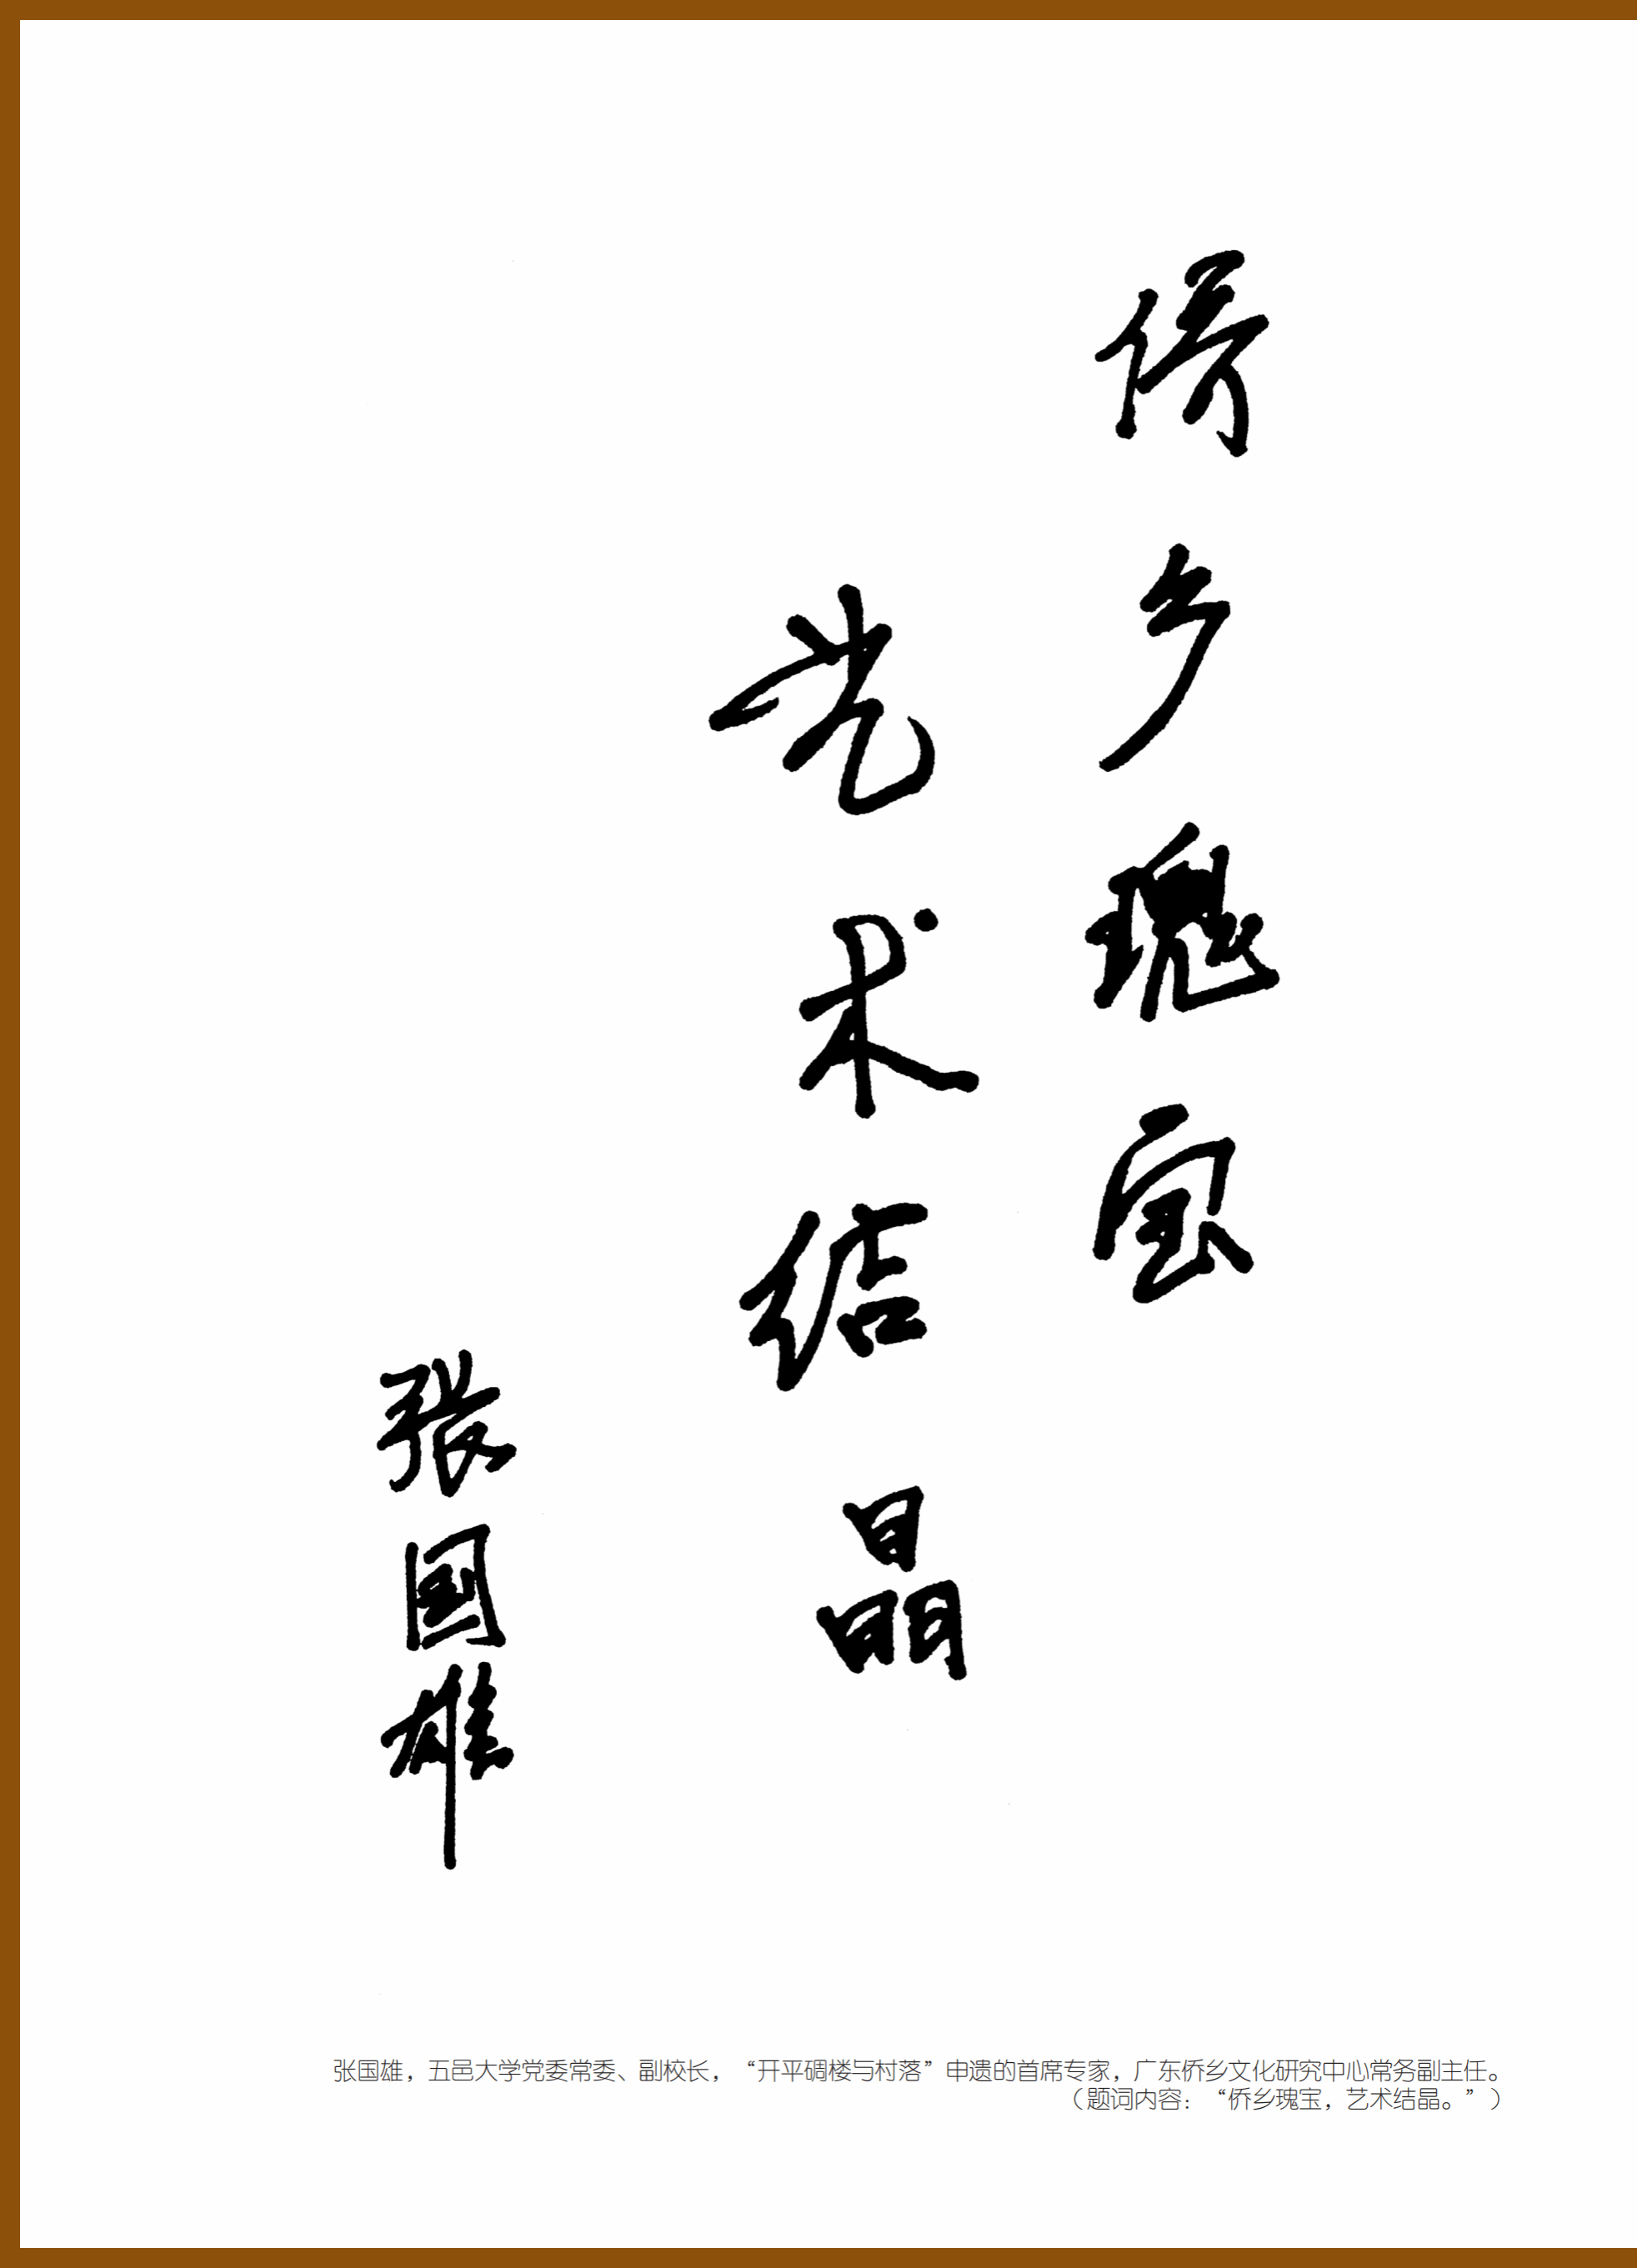 侨乡瑰宝
艺术结晶
张國雄
张国雄，五邑大学党委常委、副校长，“开平碉楼与村落”申遗的首席专家，广东侨乡文化研究中心常务副主任。
（题词内容：“侨乡瑰宝，艺术结晶。”）